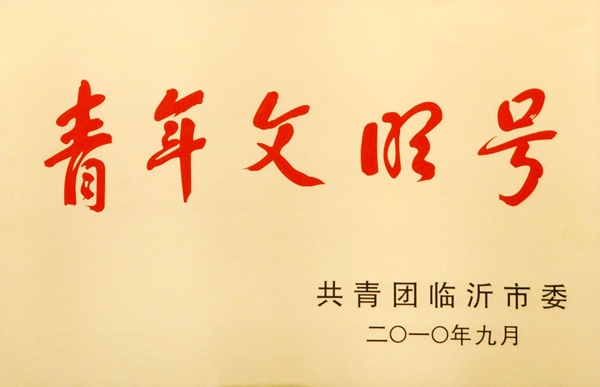 青年文明号
共青团临沂市委
二〇一〇年九月